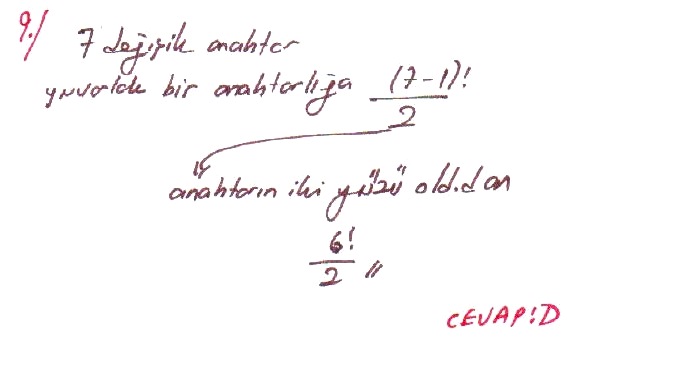 9./
7 değişik anahtar
yuvarlak bir anahtarlığa (7-1)!/2
anahtarın iki yüzü old.dan
6!/2 //
CEVAP:D